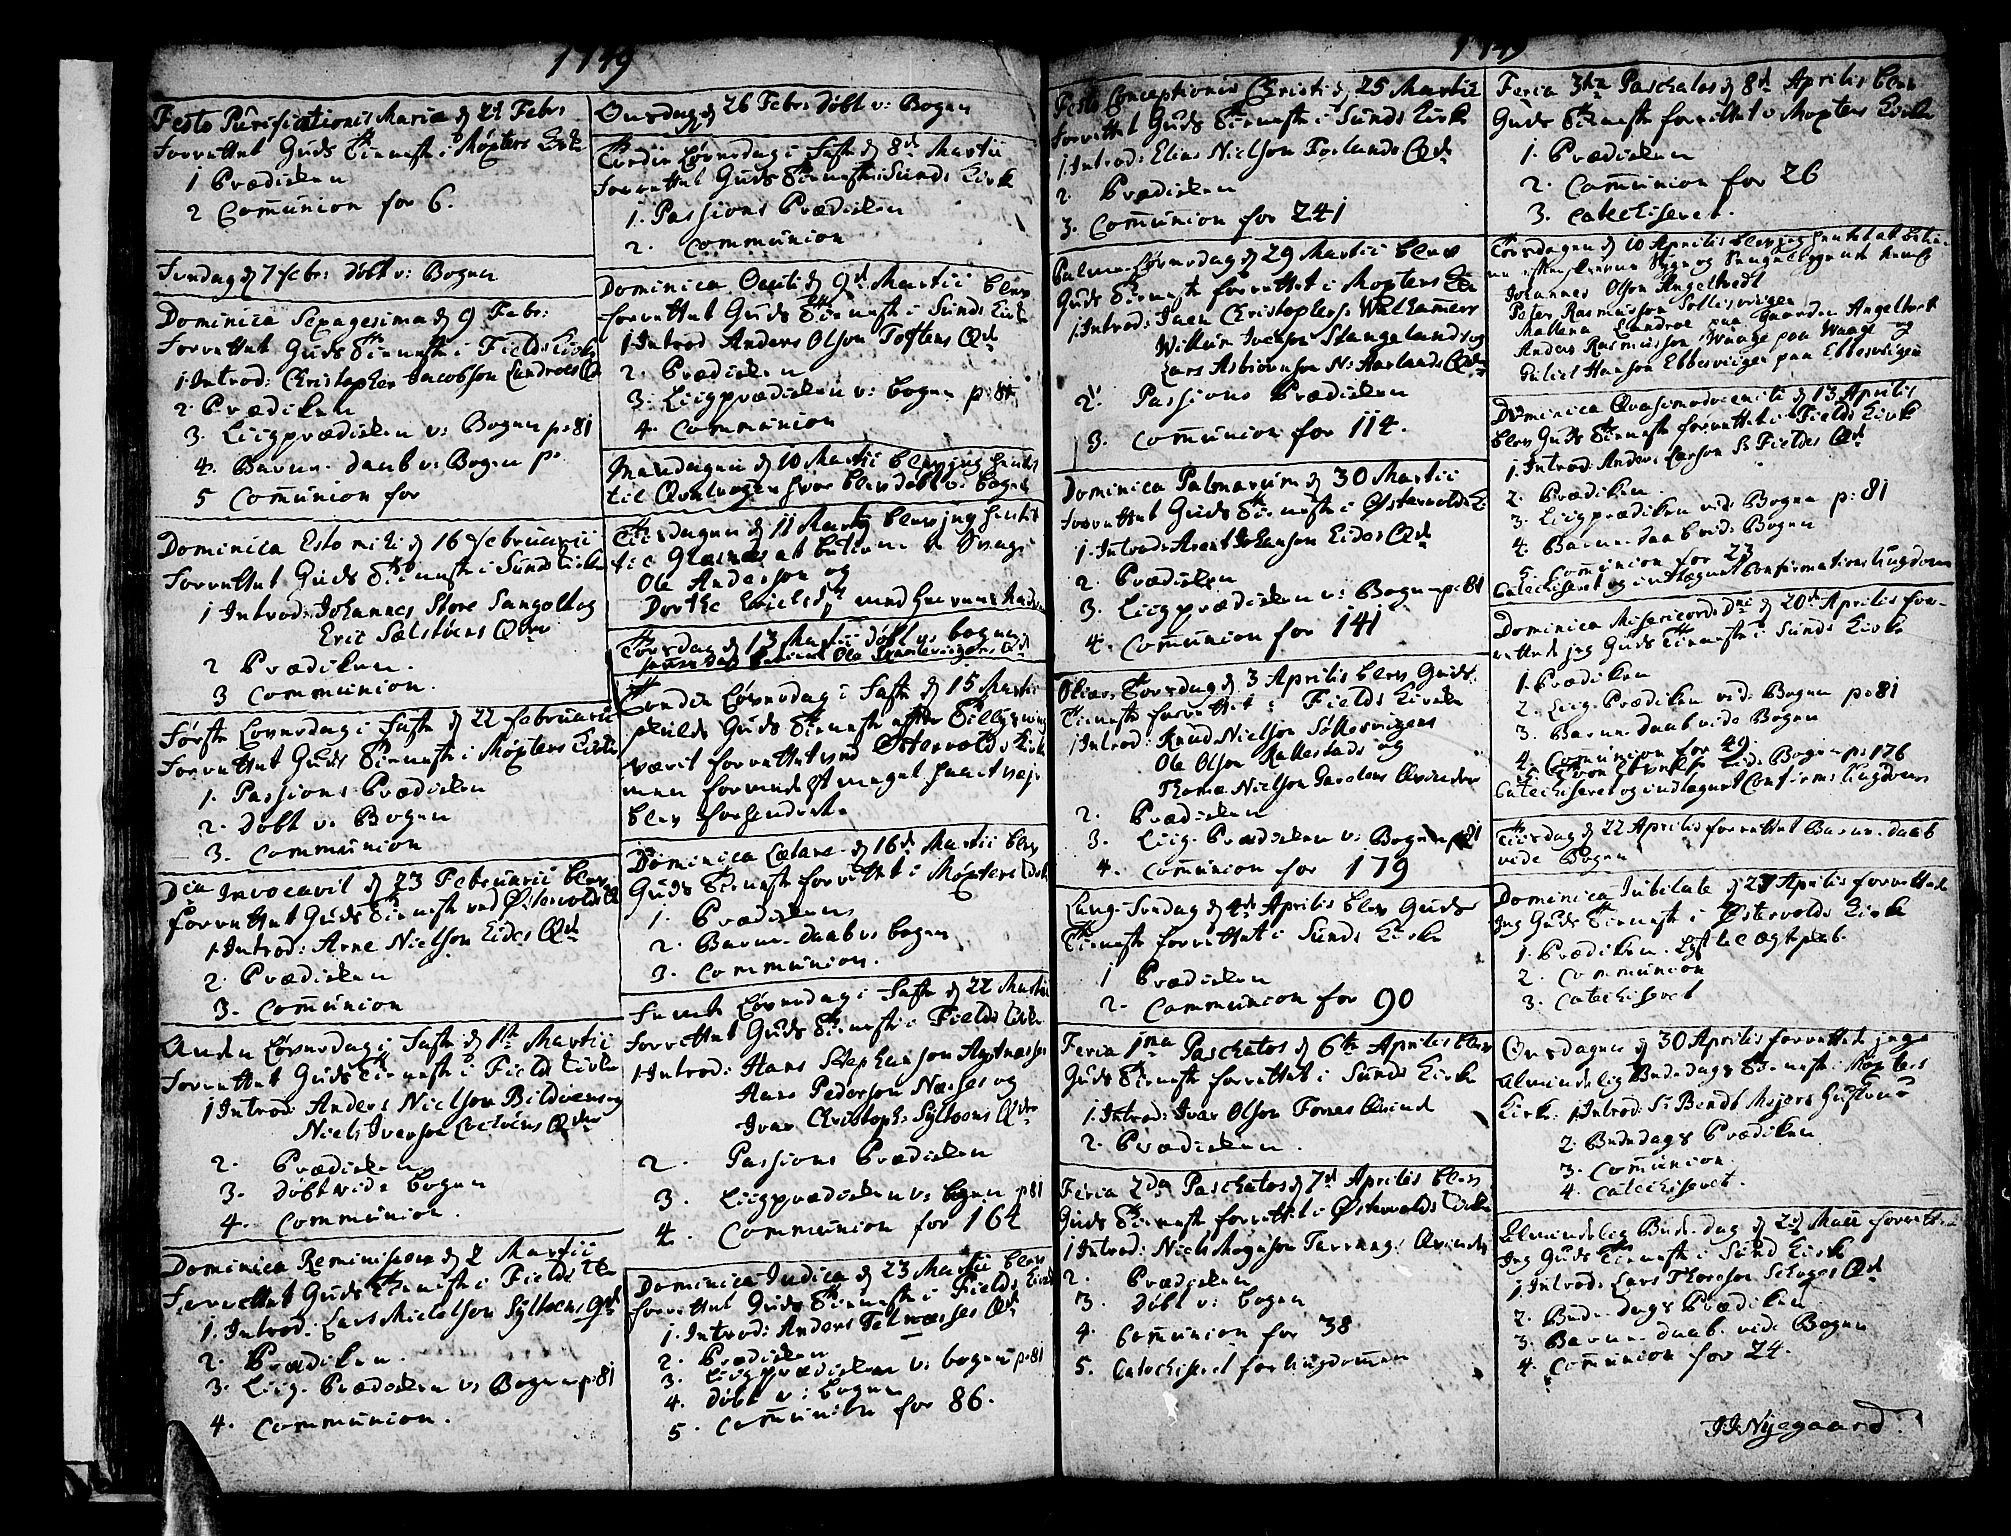 1749
Festo Purificationis Mariæ d 2d Febr
forrettet Guds Tieneste i Møgsters Kirke
1 Prædiken
2 Communion for 6.
Fredag d 7 Febr: døbt v: Bogen
Dominica Sexagesima d 9 Febr:
forrettet Guds Tieneste i Fields Kirke
1 Introd: Christopher Jacobson Landroes Qd
2. Prædiken
3. Liigprædiken v: Bogen p: 81
4. Barne-daab v: Bogen p:
5 Communion for
Dominica Esto mihi d 16 februarii
forrettet Guds Tieneste i Sund Kirke
1 Introd: Johannes Store Sangolt og
Eric Sælstøens Qdr
2 Prædiken.
3 Communion.
Første Løverdag i Faste d 22 februarii
forrettet Guds Tieneste i Møgsters Kirke
1. Passions Prædiken
2. Døbt v: Bogen
3. Communion
Dca Invocavit d 23 Februarii blev
forrettet Guds Tieneste ved Østervolds K
1. Introd: Arne Nielson Eides Qd
2. Prædiken
3. Communion
Anden Løverdag i Faste d 1st Martii
forrettet Guds Tieneste i Fields Kirke
1 Introd: Anders Nielson Bildøens og
Niels Iverson Qdr
2. Prædiken
3. Døbt vide bogen
4. Communion.
Dominica Reminiscere d 2 Martii
forrettet Guds Tieneste i Fields K
1. Introd: Lars Michelson Syltøens Qd
2. Prædiken.
3. Liig-Prædiken v: Bogen p: 81
4. Communion.
Onsdag d 26 Febr: Døbt v: Bogen
Tredie Løverdag i Faste d 8d Martii
forrettet Guds Tieneste i Sunds Kirke
1. Passions Prædiken
2. Communion
Dominica Oculi d 9d Martii blev
forrettet Guds Tieneste i Sunds Kirke
1 Introd Anders Olson Toftens Qd
2. Prædiken
3. Liigprædiken v: bogen p: 81
4. Communion
Mandagen d 10 Martii blev jeg hentet
til hvor blev døbt v: bogen
Tiirsdagen d 11 Martij blev jeg hentet
til Glæsnes at betiene de Svage
Ole Anderson og
Dorthe
Torsdag d 13 Martii døbt v: bogen
Fierde Løverdag i Faste d 15 Martii
skulde Guds Tieneste efter
været forrettet ved Østervolds Kirke
men formedelst meget haart veir
blev forhindret.
Dominica Lætare d 16d Martii blev
Guds Tieneste forrettet i Møgsters Kirke
1. Prædiken
2. Barne-daab v: bogen
3. Communion.
Femte Løverdag i Faste d 22 Martii
forrettet Guds Tieneste i Fields Kirke
1. Introd: Hans Stephanson
Hans Pederson Næsses og
Ivar Christoph: Syltøens Qdr
2. Passions Prædiken
3. Liigprædiken v: bogen p: 81
4. Communion for 164
Dominica Judica d 23 Martii blev
forrettet Guds Tieneste i Fields Kirke
1. Introd: Anders Telnæsses Qd
2. Prædiken
3. Liigprædiken v: bogen p: 81
4. døbt v: bogen
5. Communion for 86.
1749
Festo Conceptionis Christi d 25 Martii
forrettet Guds Tieneste i Sunds Kirke
1. Introd: Elias Nielson Forlands Qd
2. Prædiken
3. Communion for 241
Palme-Løverdag d 29 Martii blev
Guds Tieneste forrettet i Møgsters K
1 Introd: Jaen Christophers: Walhammer
Willum Iverson Stangelands og
Lars Asbiørnson N: Harlands Qdr
2. Passions Prædiken
3. Communion for 114.
Dominica Palmarum d 30 Martii
forrettet Guds Tieneste i Østervolds K
1. Introd: Arent Johanson Eides Qd
2. Prædiken
3. Liigprædiken v: Bogen p: 81
4. Communion for 141
Skiær-Torsdag d 3 Aprilis blev Guds
Tieneste forrettet i Fields Kirke
1 Introd: Knud Nielson Solesvigens
Ole Olson Rakkestads og
Thomæ Nielson Qvinder
2. Prædiken
3. Liig-Prædiken v: Bogen p: 81
4. Communion for 179
Lang-Fredag d 4d Aprilis blev Guds
Tieneste forrettet i Sunds Kirke
1 Prædiken
2. Communion for 90
Feria 1ma Paschatos d 6te Aprilis blev
Guds Tieneste forrettet i Sunds Kirke
1. Introd: Ivar Olson Tornes Qvinde
2. Prædiken.
Feria 2da Paschatos d 7d Aprilis blev
Guds Tieneste forrettet i Østervolds Kirke
1 Introd: Niels Mognson Qvinde
2. Prædiken
3. Døbt v: bogen
4. Communion for 38
5. Catechiseret for Ungdommen
Feria 3tia Paschatos d 8d Aprilis blev
Guds Tieneste forrettet v: Møgsters Kirke
1. Prædiken
2. Communion for 26
3. Catechiseret.
Torsdagen d 10 Aprilis blev jeg hentet at betie-
ne efterskrevne Syge og Sengeliggende
Johannes Olson Angeltvedt
Peder Rasmusson Sollesviigen
Mallena Landroe paa Gaarden Angeltvedt
Anders Rasmusson Waage paa Waage og
Hanson Ebbesviigen paa Ebbesviigen
Dominica Qvasimodogeniti d 13 Aprilis
blev Guds Tieneste forrettet i Fields Kirke
1. Introd: Anders Larson S: Fieldes Qd
2. Prædiken.
3. Liigprædiken vid: Bogen p: 81
4. Barne-daab vid: Bogen
5. Communion for 23
Catechiseret og indtegnet Confirmations Ungdom
Dominica Misericord: Dni d 20de Aprilis for-
rettede jeg Guds Tieneste i Sunds Kirke
1. Prædiken
2. Liig-Prædiken vid: Bogen p: 81
3. Barne-daab vide Bogen
4. Communion for 49.
5. vide Bogen p: 176
Catechiseret og indtegnet Confirm: Ungdom
Tiirsdag d 22 Aprilis forrettet Barne-daab
vide Bogen
Dominica Jubilate d 27 Aprilis forrettede
jeg Guds Tieneste i Østervolds Kirke
1. Prædiken. Lyst til Ægteskab.
2. Communion
3. Catechiseret
Onsdagen d 30 Aprilis forrettede jeg
Almindelig Bededags Tieneste i Møgsters
Kirke. 1. Introd: Sr Bendt Mejers Hustrue
2. Bededags Prædiken
3. Communion.
4. Catechiseret.
Almindelig Bede-dag d 2d Maii forrettede
jeg Guds Tieneste i Sund Kirke
1. Introd: Lars Thoreson Qd
2. Bede-dags Prædiken
3. Barne-daab vide Bogen
4. Communion for 24.
JJNyegaard